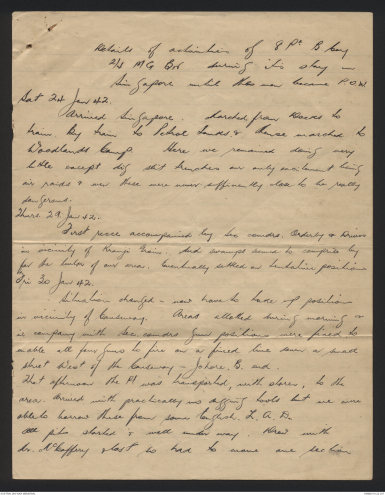 Details of activities of 8 Pl B Coy
2/4 MG Bn during its stay in
Singapore until this unit became P.O.W
Sat 24 Jan 42.
Arrived Singapore. Marched from Docks to
train. By train to School Sands & thence marched to
Woodlands Camp. Here we remained doing very
little except dig slit trenches our only excitement being
air raids & even these were never sufficiently close to be really
dangerous.
Thurs 29 Jan 42.
First recce accompanied by Sec comdrs, Orderly & Drivers
in vicinity of Kranji Area. Had swamps seemed to comprise by
far the bulk of our area. Eventually settled on tentative positions
Fri 30 Jan 42.
Situation changed - now have to take up position
in vicinity of Causeway. Areas allotted during morning &
in company with Sec. comdrs gun positions were fixed to
enable all four guns to fire on a fixed line down a small
street West of the Causeway - Johore, B. end.
That afternoon the Pl was transported, with stores, to the
area. Arrived with practically no digging tools but we were
able to borrow these from some English L. A. D.
pits started & well under way. Drew with
Lt. McCaffrey & lost so had to move one section